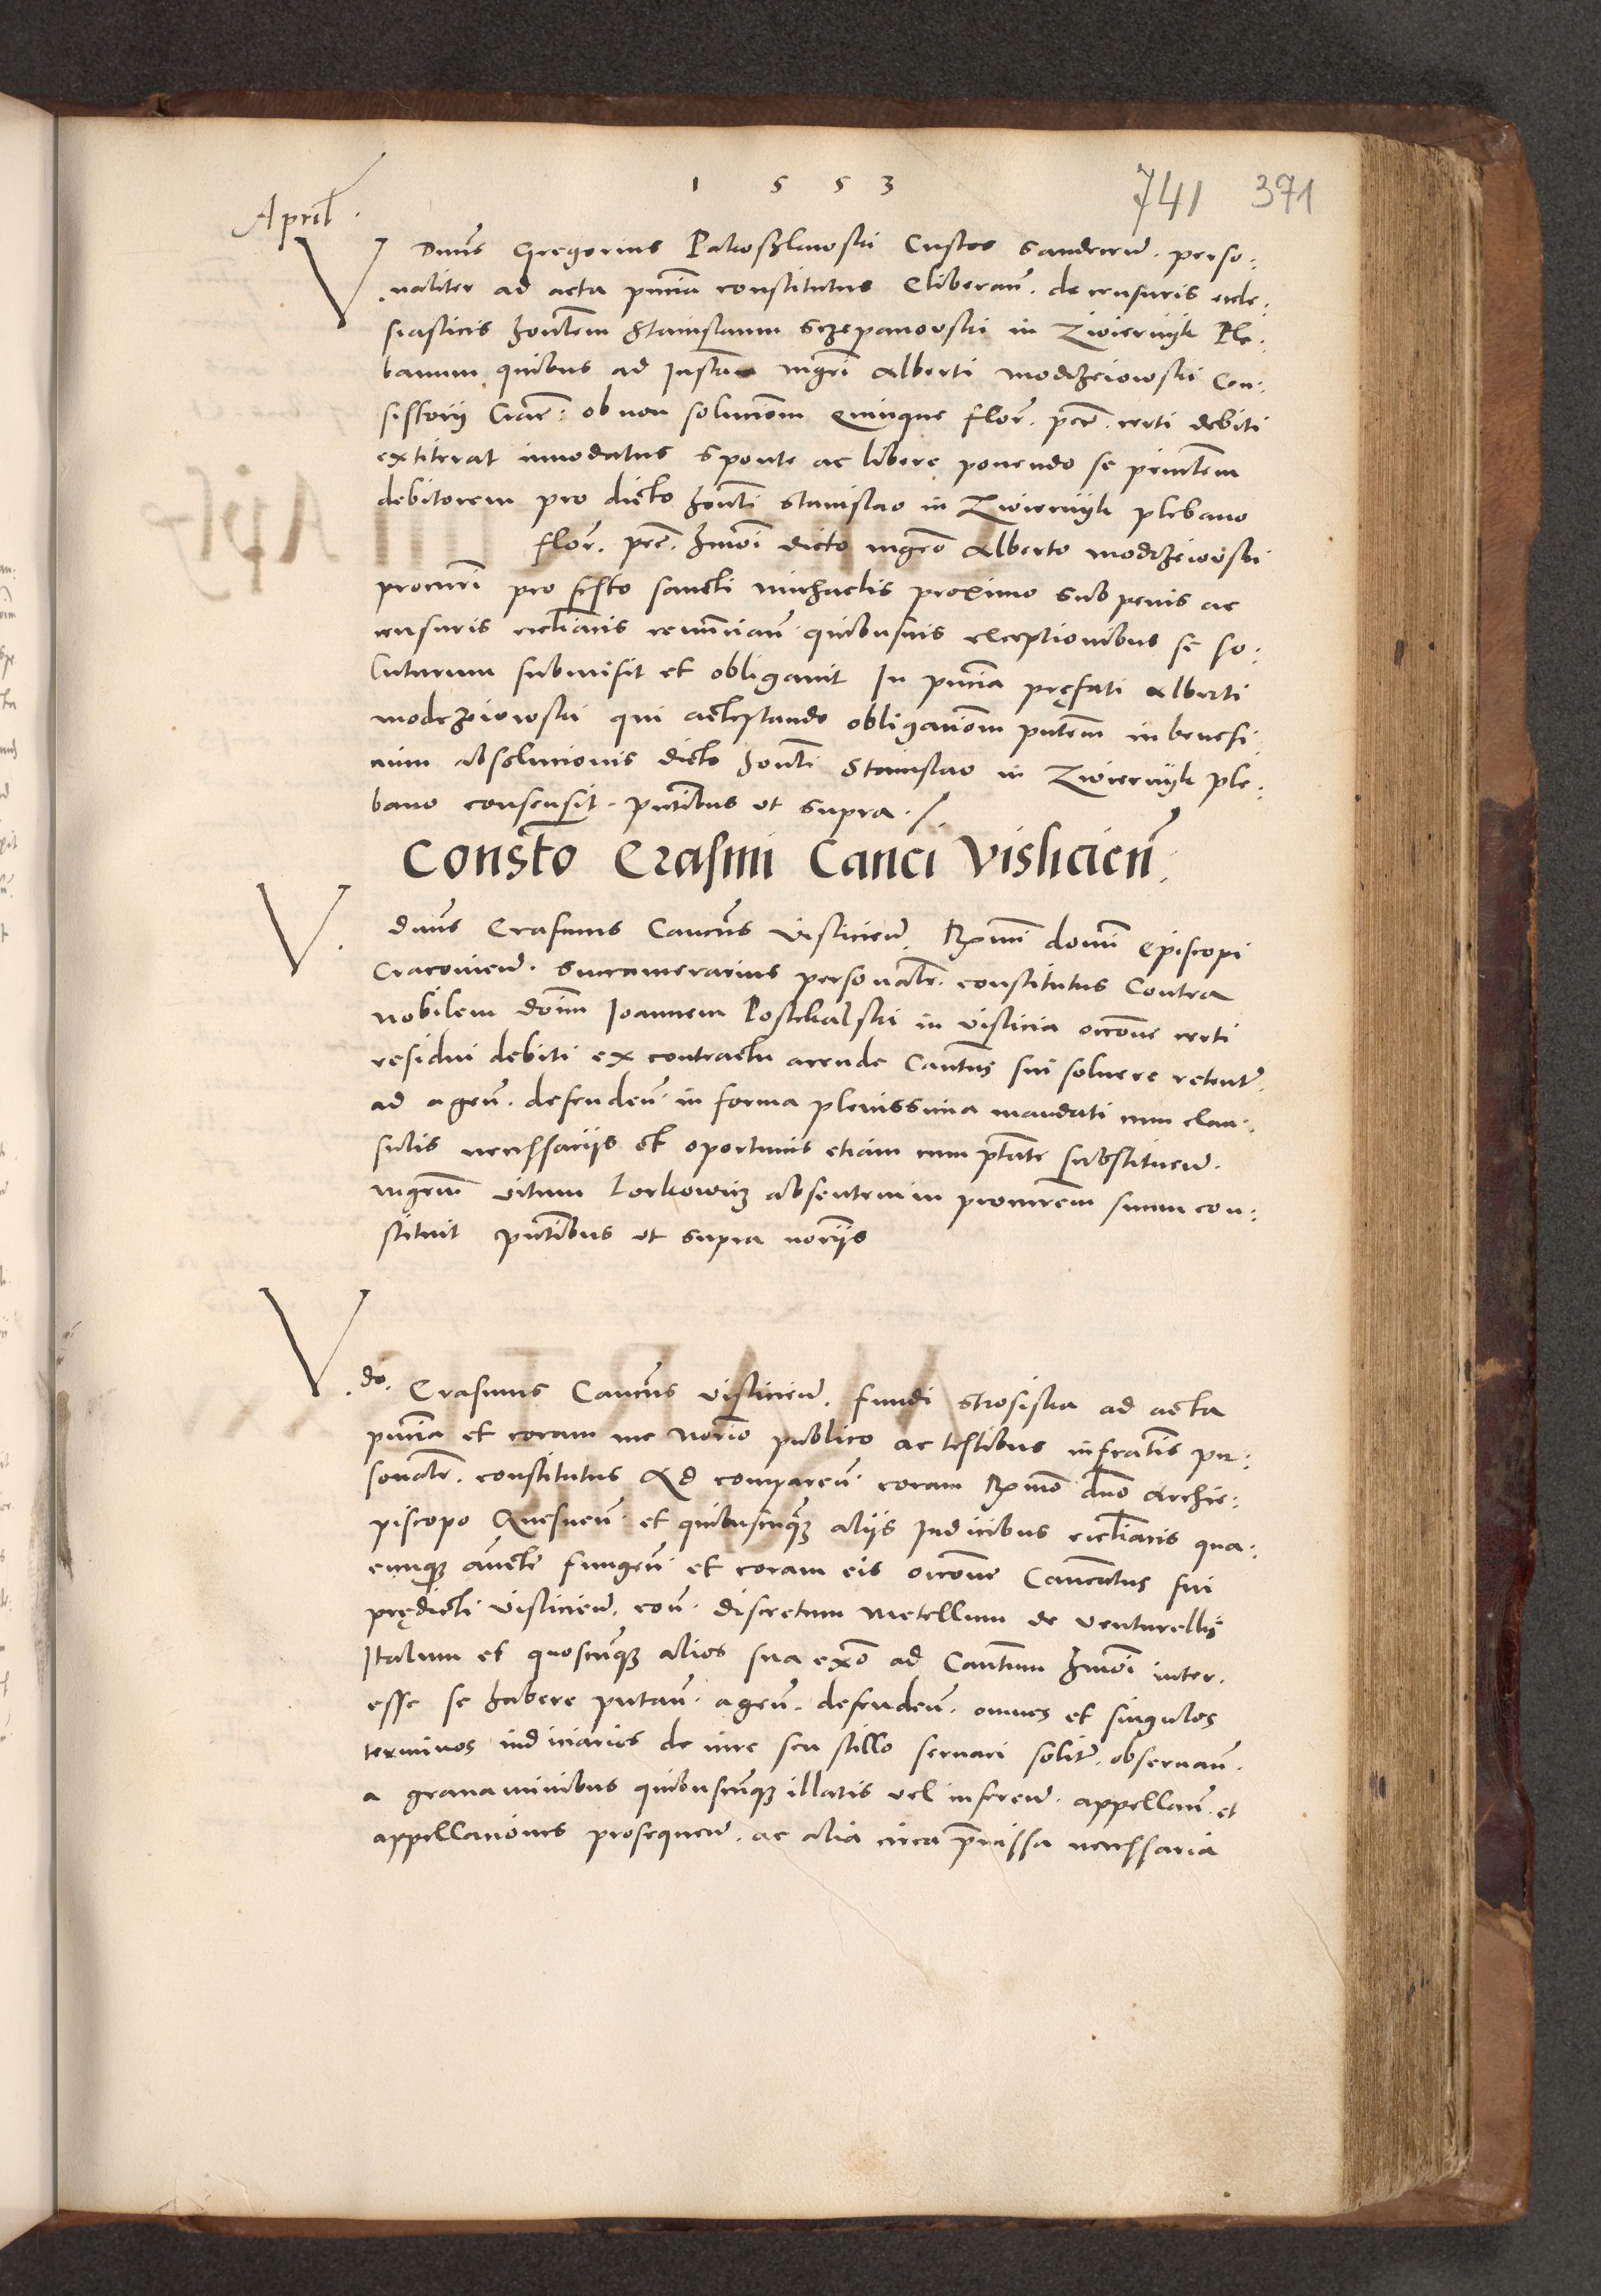 1 5 5 3
741 371
April
V Dnus Gregorius Pakoszlawski Custos Sandecien. perso:
naliter ad acta pntia constitutus Eliberan. de censuris eccle:
siasticis honlem Stanislaum Sczepanowski in Zwiernyk Ple:
banum quibus ad Instan mgri Alberti Modrzeiowski Con:
sistorii Crac: ob non solucionem Quinque flor. pec. certi debiti
extiterat innodatus Sponte ac libere ponendo se principalem
debitorem pro dicto honli Stanislao in Zwiernyk plebano
flor. pec. hmoi dicto mgro Alberto Modrzeiowski
procuri pro festo sancti Michaelis proximo Sub penis ac
censuris ecclianis renuncian. quibusuis exceptionibus se so:
luturum submisit et obligauit In pntia pręfati Alberti
Modrzeiowski qui acceptando obligacionem pntem in benefi
cium absolucionis dicto honli Stanislao in Zwiernyk ple:
bano consensit. pntibus ut supra ./.
Constto Erasmi Canci Vislicien.
V. dnus Erasmus Cancus Vislicien. Rxmi domi Episcopi
Cracouien. Succamerarius personalr. constitutus Contra
nobilem domi Ioannem Poschalski in Vislicia occone certi
residui debiti ex contractu arende Cantus sui soluere retent.
ad agen. defenden. in forma plenissima mandati cum clau:
sulis necessariis et oportunis etiam cum ptate substituen.
mgrum Vitum Lorkowicz absentem in procurem suum con:
stituit pntibus ut supra noriis
V. do. Erasmus Cancus Vislicien. fundi Strosiska ad acta
pntia et coram me norio publico ac testibus infratis per:
sonalr. constitutus Ad comparen. coram Rxmo dno Archie:
piscopo Gnesnen. et quibuscunque aliis Iudicibus ecclianis qua:
cunque aucte fungen. et coram eis occone Canonicatus sui
prędicti Vislicien. con. discretum Metellum de Venturellis
Italum et quoscunque alios sua exo ad Cantum hmoi inter.
esse se habere putan. agen. defenden. omnes et singulos
terminos iudiciarios de iure seu stillo seruari solit. obseruan.
a grauaminibus quibuscunque illatis vel inferen. appellan. et
appellationes prosequen. ac alia circa premissa necessaria